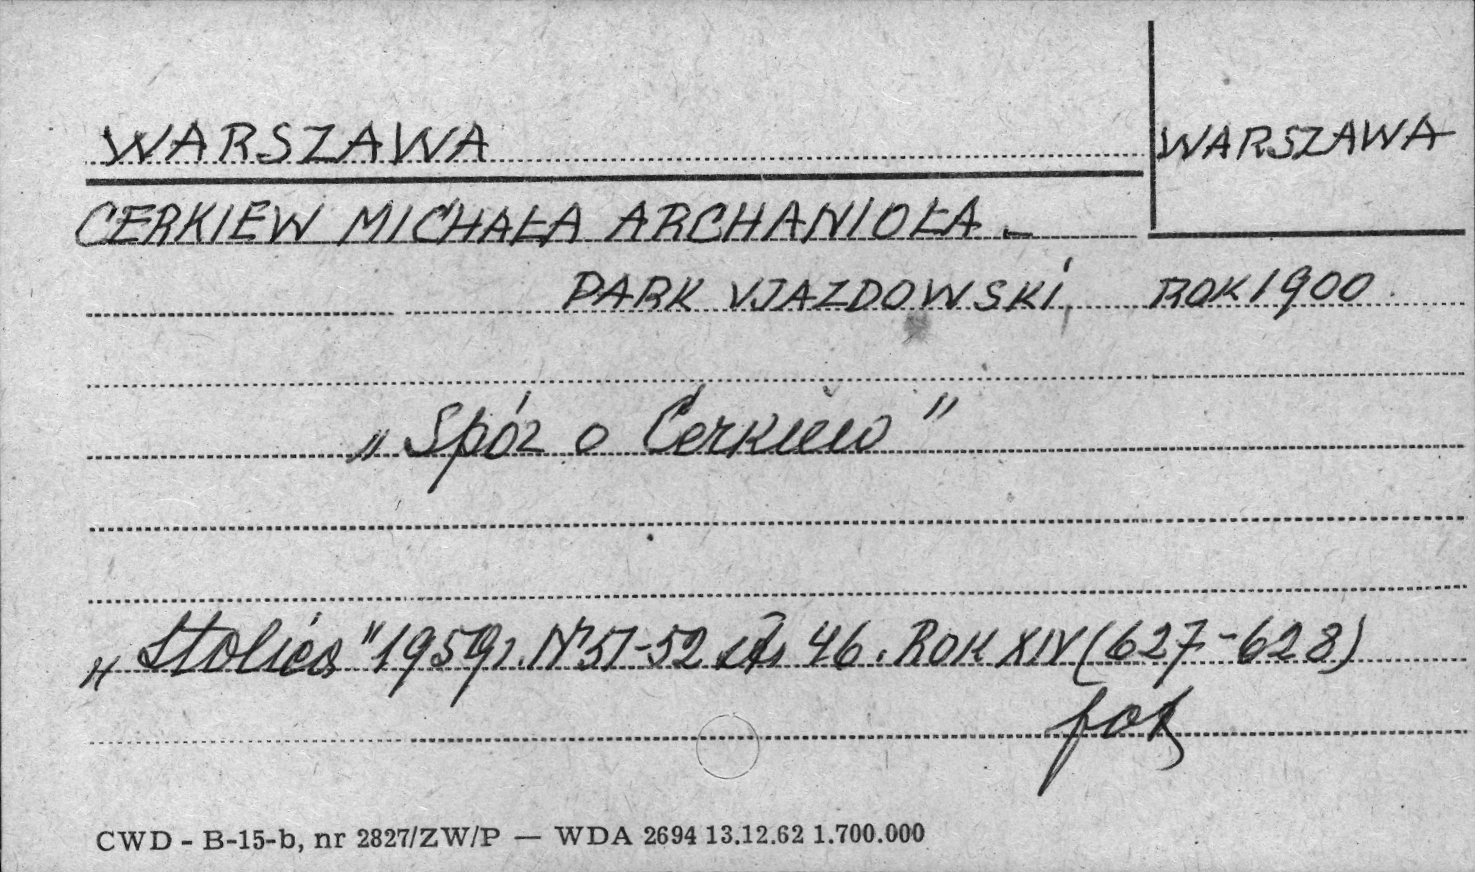 WARSZAWA
WARSZAWA
CERKIEW MICHAŁA ARCHANIOŁA –
PARK UJAZDOWSKI, ROK 1900.
„Spór o Cerkiew"
„Stolica" 1959 r. Nr 51-52 str. 46. ROK XIV (627-628)
fot
CWD - B-15-b, nr 2827/ZW/P — WDA 2694 13.12.62 1.700.000